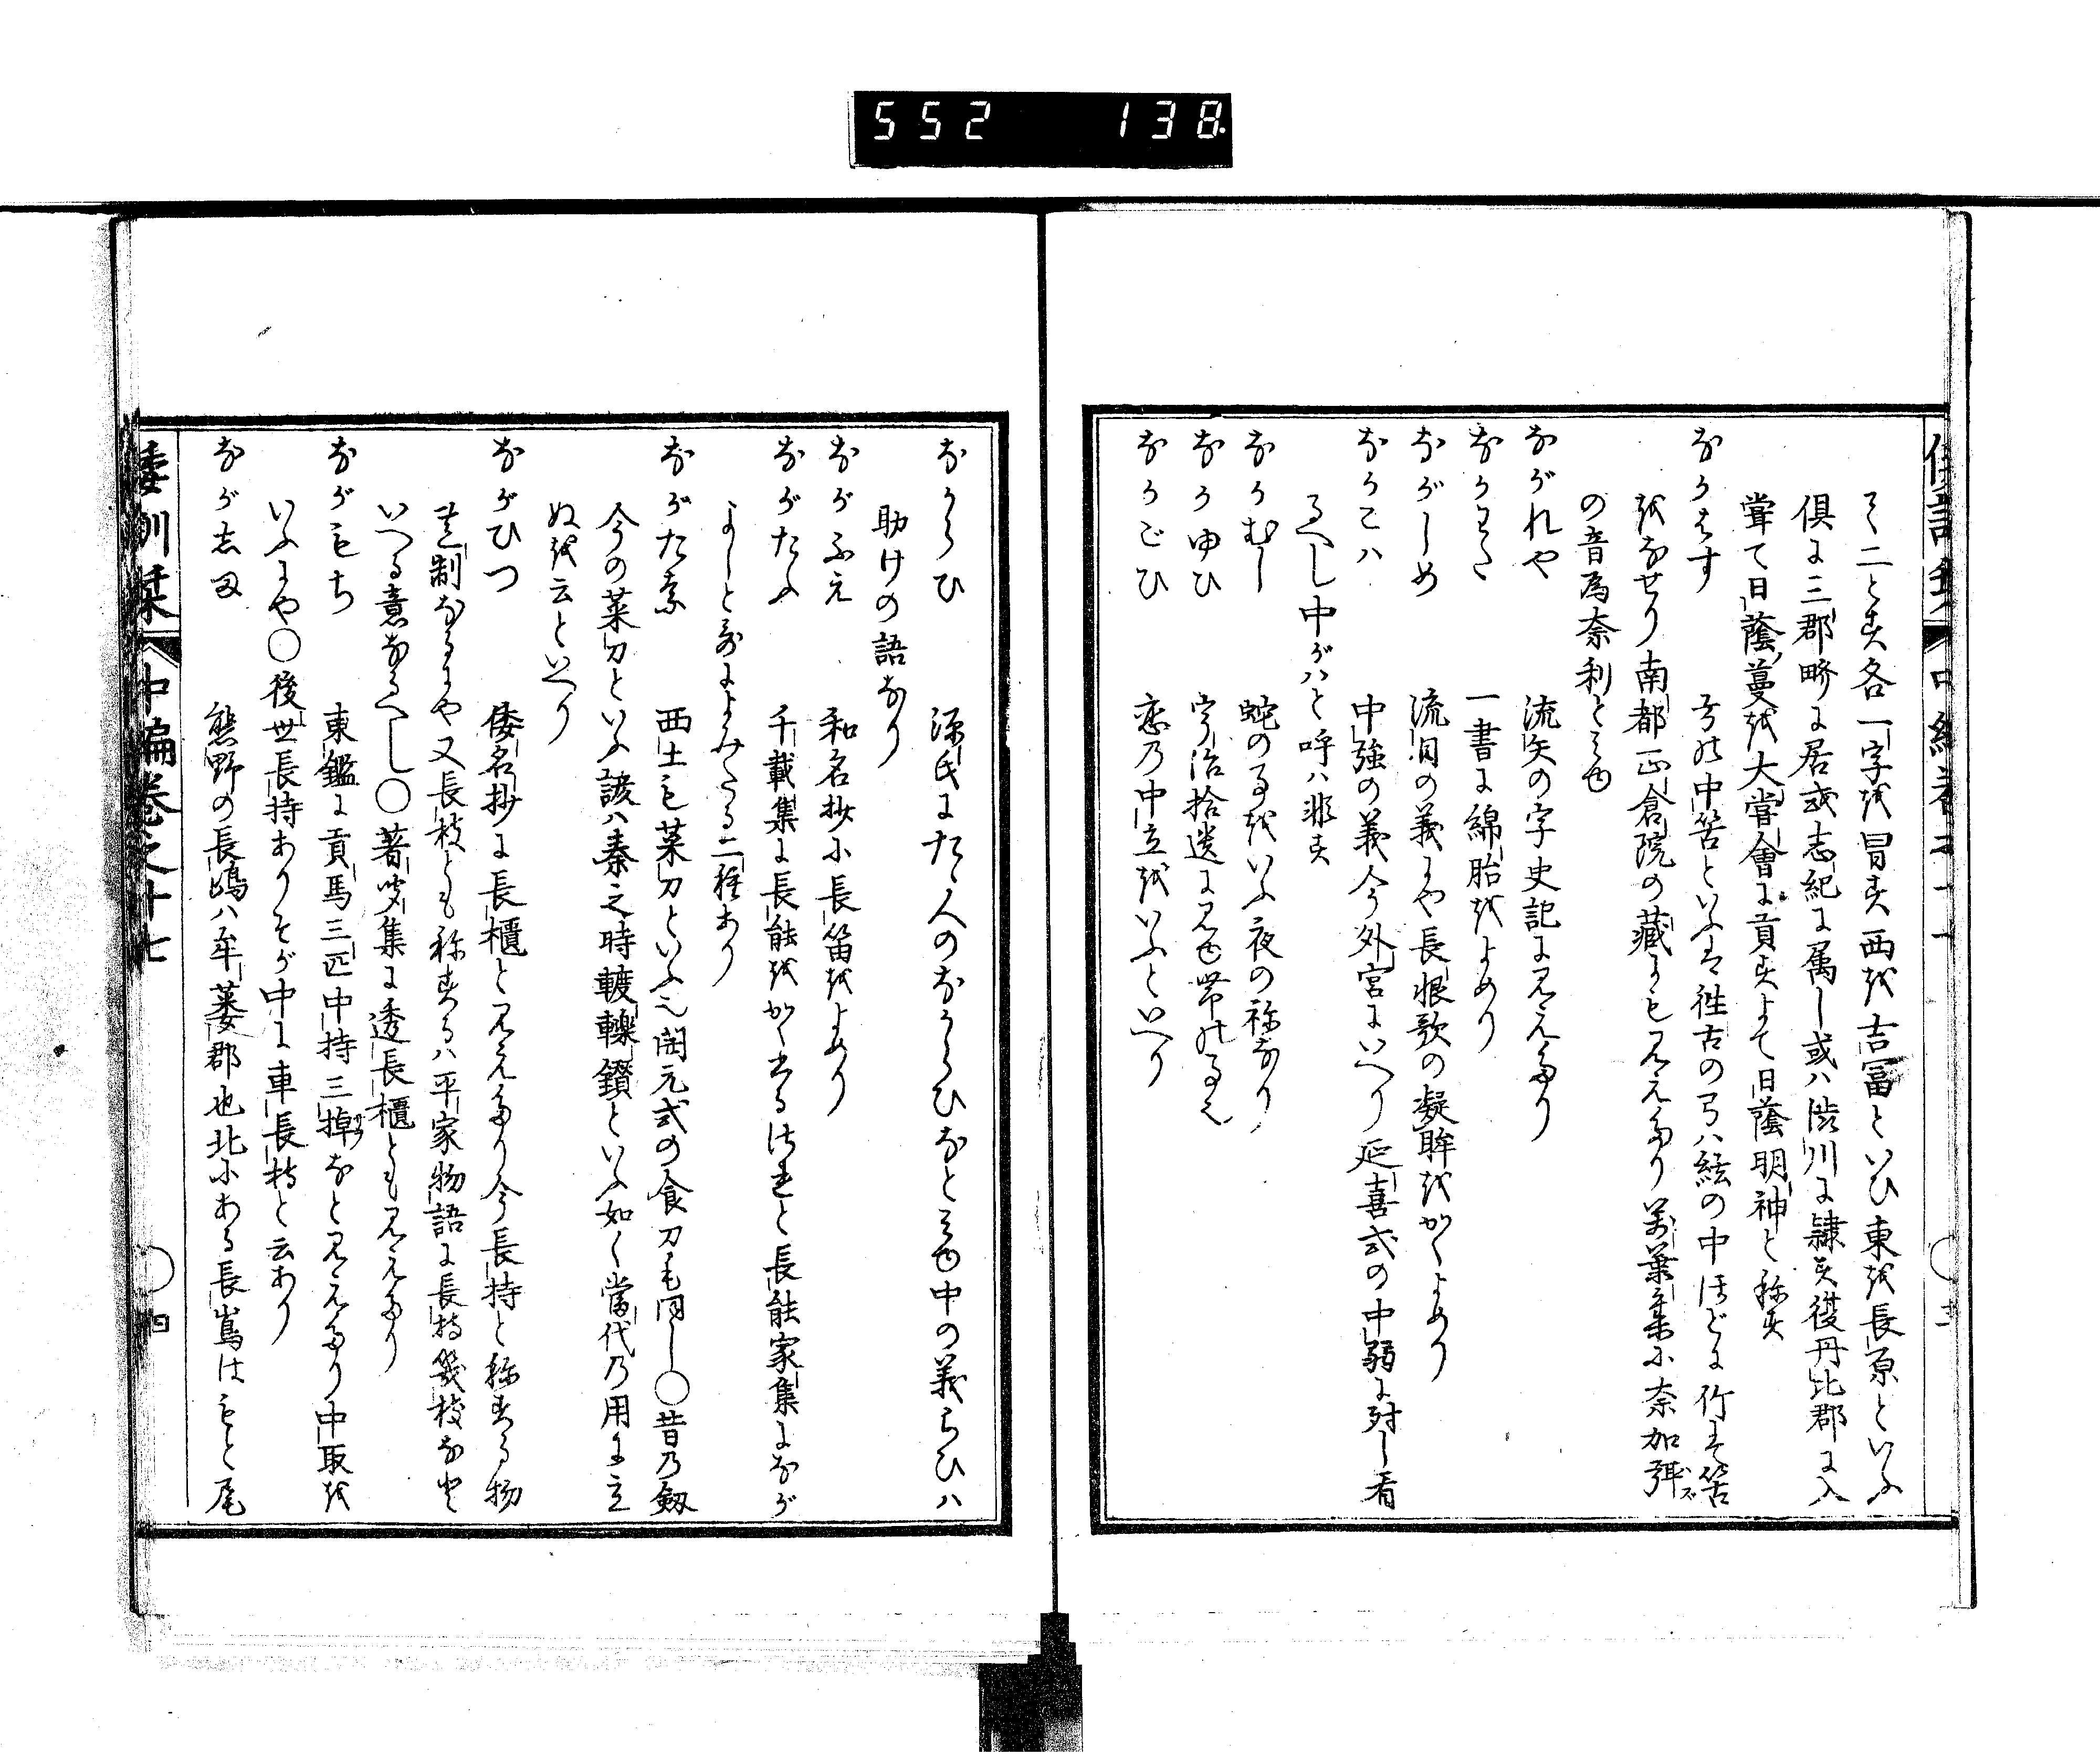 552 138
て二とす各一字を冒す西を吉冨といひ東を長原といふ
倶に三郡畍に居或志紀に属し或ハ渋川に隷す後丹比郡に入
嘗て日蔭蔓を大嘗會に貢すよて日蔭明神と称す
なかはす 弓の中筈といふは往古の弓ハ絃の中ほどに竹を筈
をなせり南都正倉院の蔵にも見えたり萬葉集に奈加弭ズ
の音為奈利とみゆ
ながれや 流矢の字史記に見えたり
なかわた 一書に綿胎をよめり
ながしめ 流目の義にや長恨歌の凝眸をかくよめり
なかこハ 中強の義今外宮にいへり延喜式の中弱に対し看
るへし中がハと呼ハ非す
なかむし 蛇の事をいふ夜の称なり
なかゆひ 宇治拾遺に見ゆ帯の事也
なかごひ 恋の中立をいふといへり
なからひ 源氏にたゝ人のなからひなとみゆ中の義らひハ
助けの語なり
ながふえ 和名抄に長笛をよめり
ながたふ 千載集に長能をかく出る されと長能家集になが
よしと哥によみたる二種あり
ながたな 西土も菜刀といふ也 元式の食刀も同し〇昔の釼
今の菜刀といふ諺ハ秦之時轅轢鑽といふ如く當代の用に立
ぬを云といへり
ながひつ 倭名抄に長櫃と見えたり今長持と称する物
其制なるにや又長枝とも称する八平家物語に長持幾枝なと
いへる意なるへし〇著聞集に透長櫃とも見えたり
ながもち 東鑑に貢馬三匹中持三掉なと見えたり中取を
いふにや〇後世長持ありそが中に車長持と云あり
ながしま 熊野の長嶋ハ牟婁郡也北にある長嶌はもと尾
倭訓栞 中編巻之十七 〇四